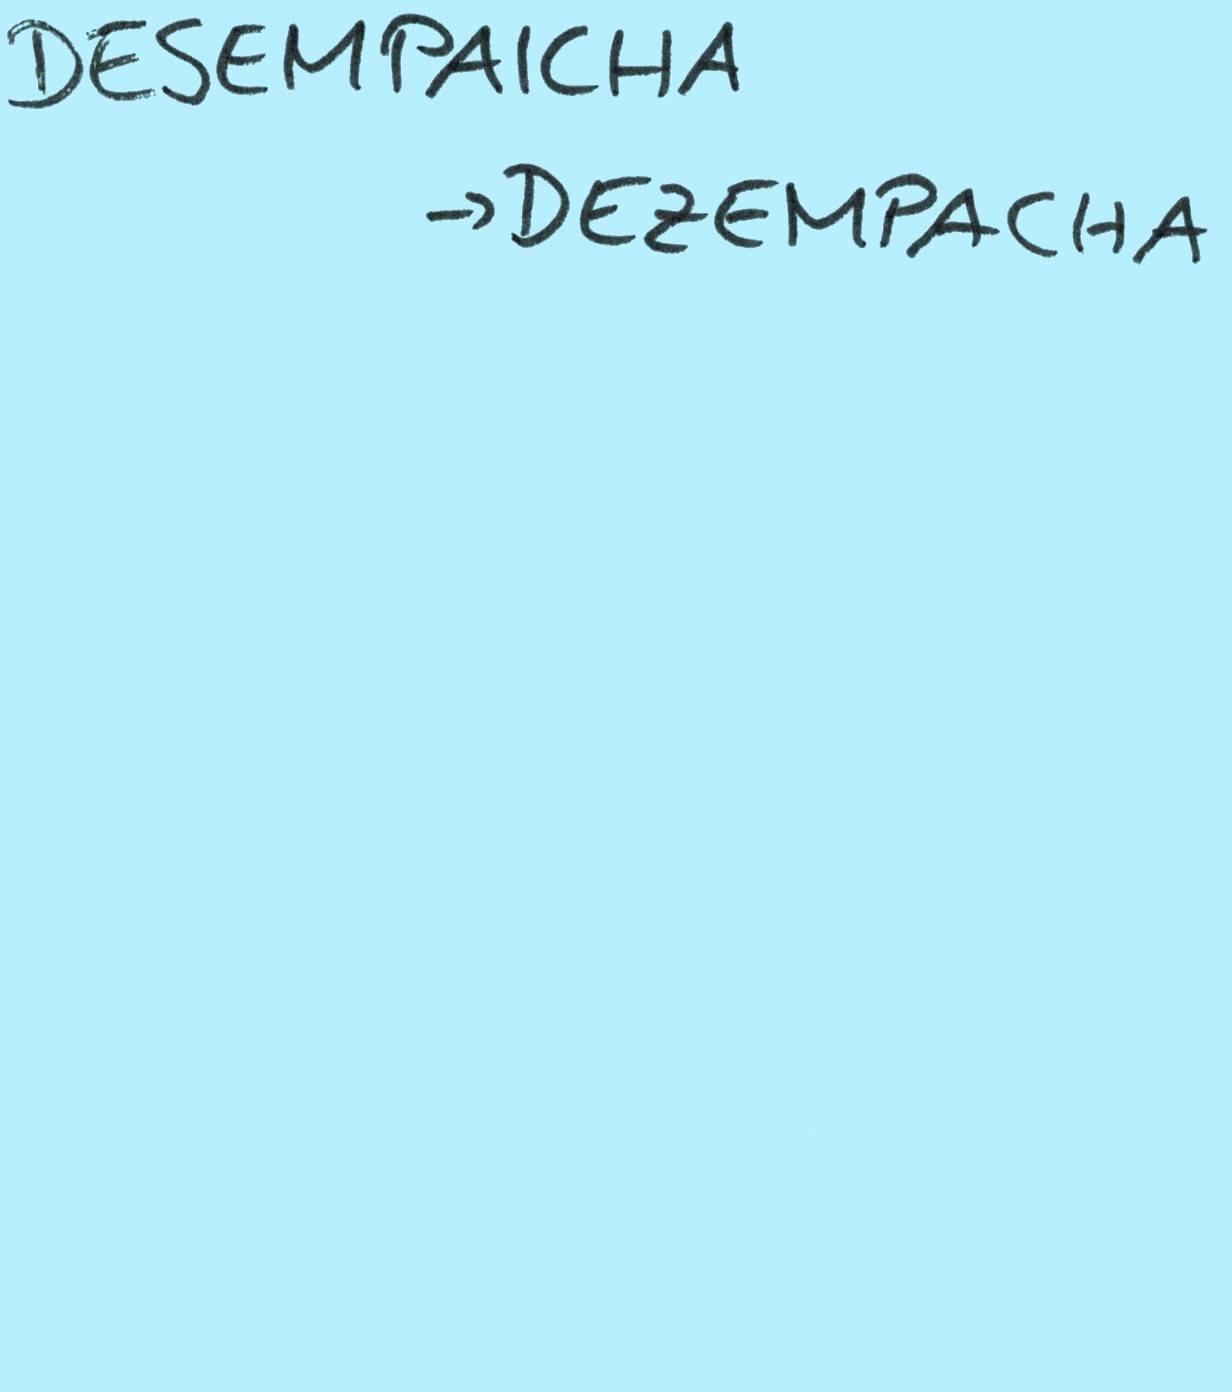 DESEMPAICHA
→DEZEMPACHA